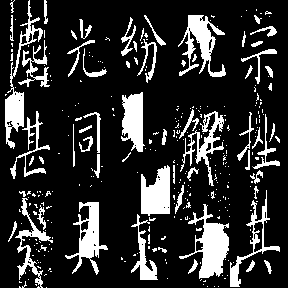 宗挫其
銳解其
紛和其
光同其
塵湛兮